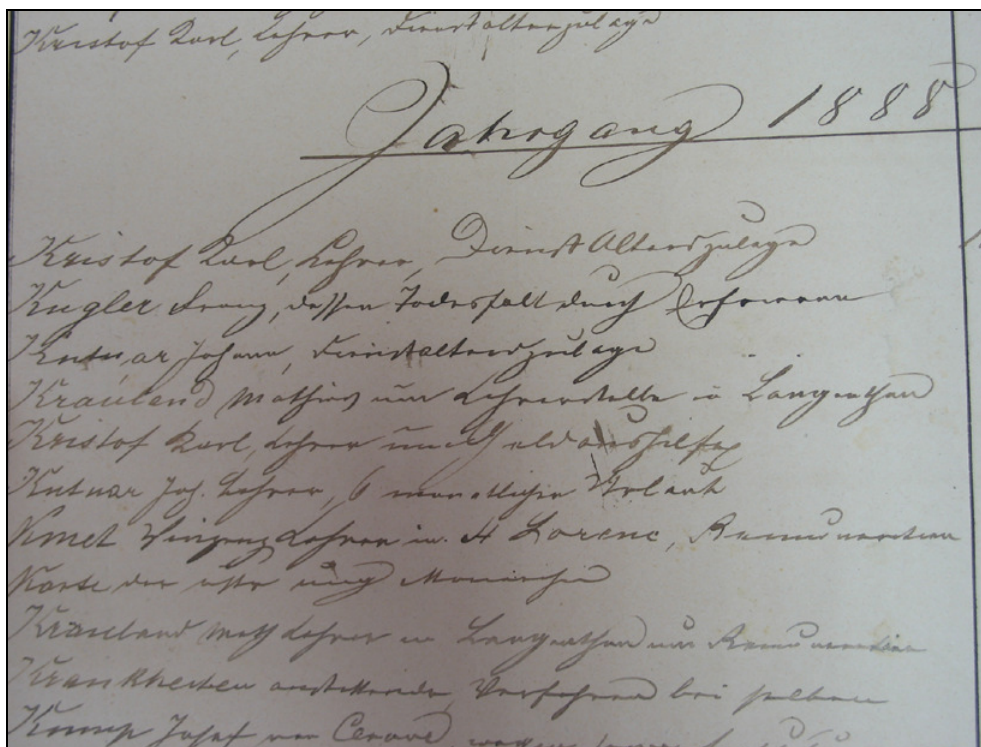 Kristof Karl, Lehrer, Dienstalterszulage
Jahrgang 1888
Kristof Karl, Lehrer, Dienst Alterszulage
Kugler Franz, dessen Todesfall durch Erfrieren
Kutnar Johann, Dienstalterszulage
Krauland Mathias um Lehrerstelle in Langenthon
Kristof Karl, Lehrer um Geldaushilfe
Kutnar Joh. Lehrer, 6 monatlicher Urlaub
Kmet Vinzenz Lehrer in St Lorenc, Remuneration
Karte der östr ung Monarchie
Krauland Math Lehrer in Langenthon um Remuneration
Krankheiten ansteckende, Verfahren bei selben
Josef von wegen